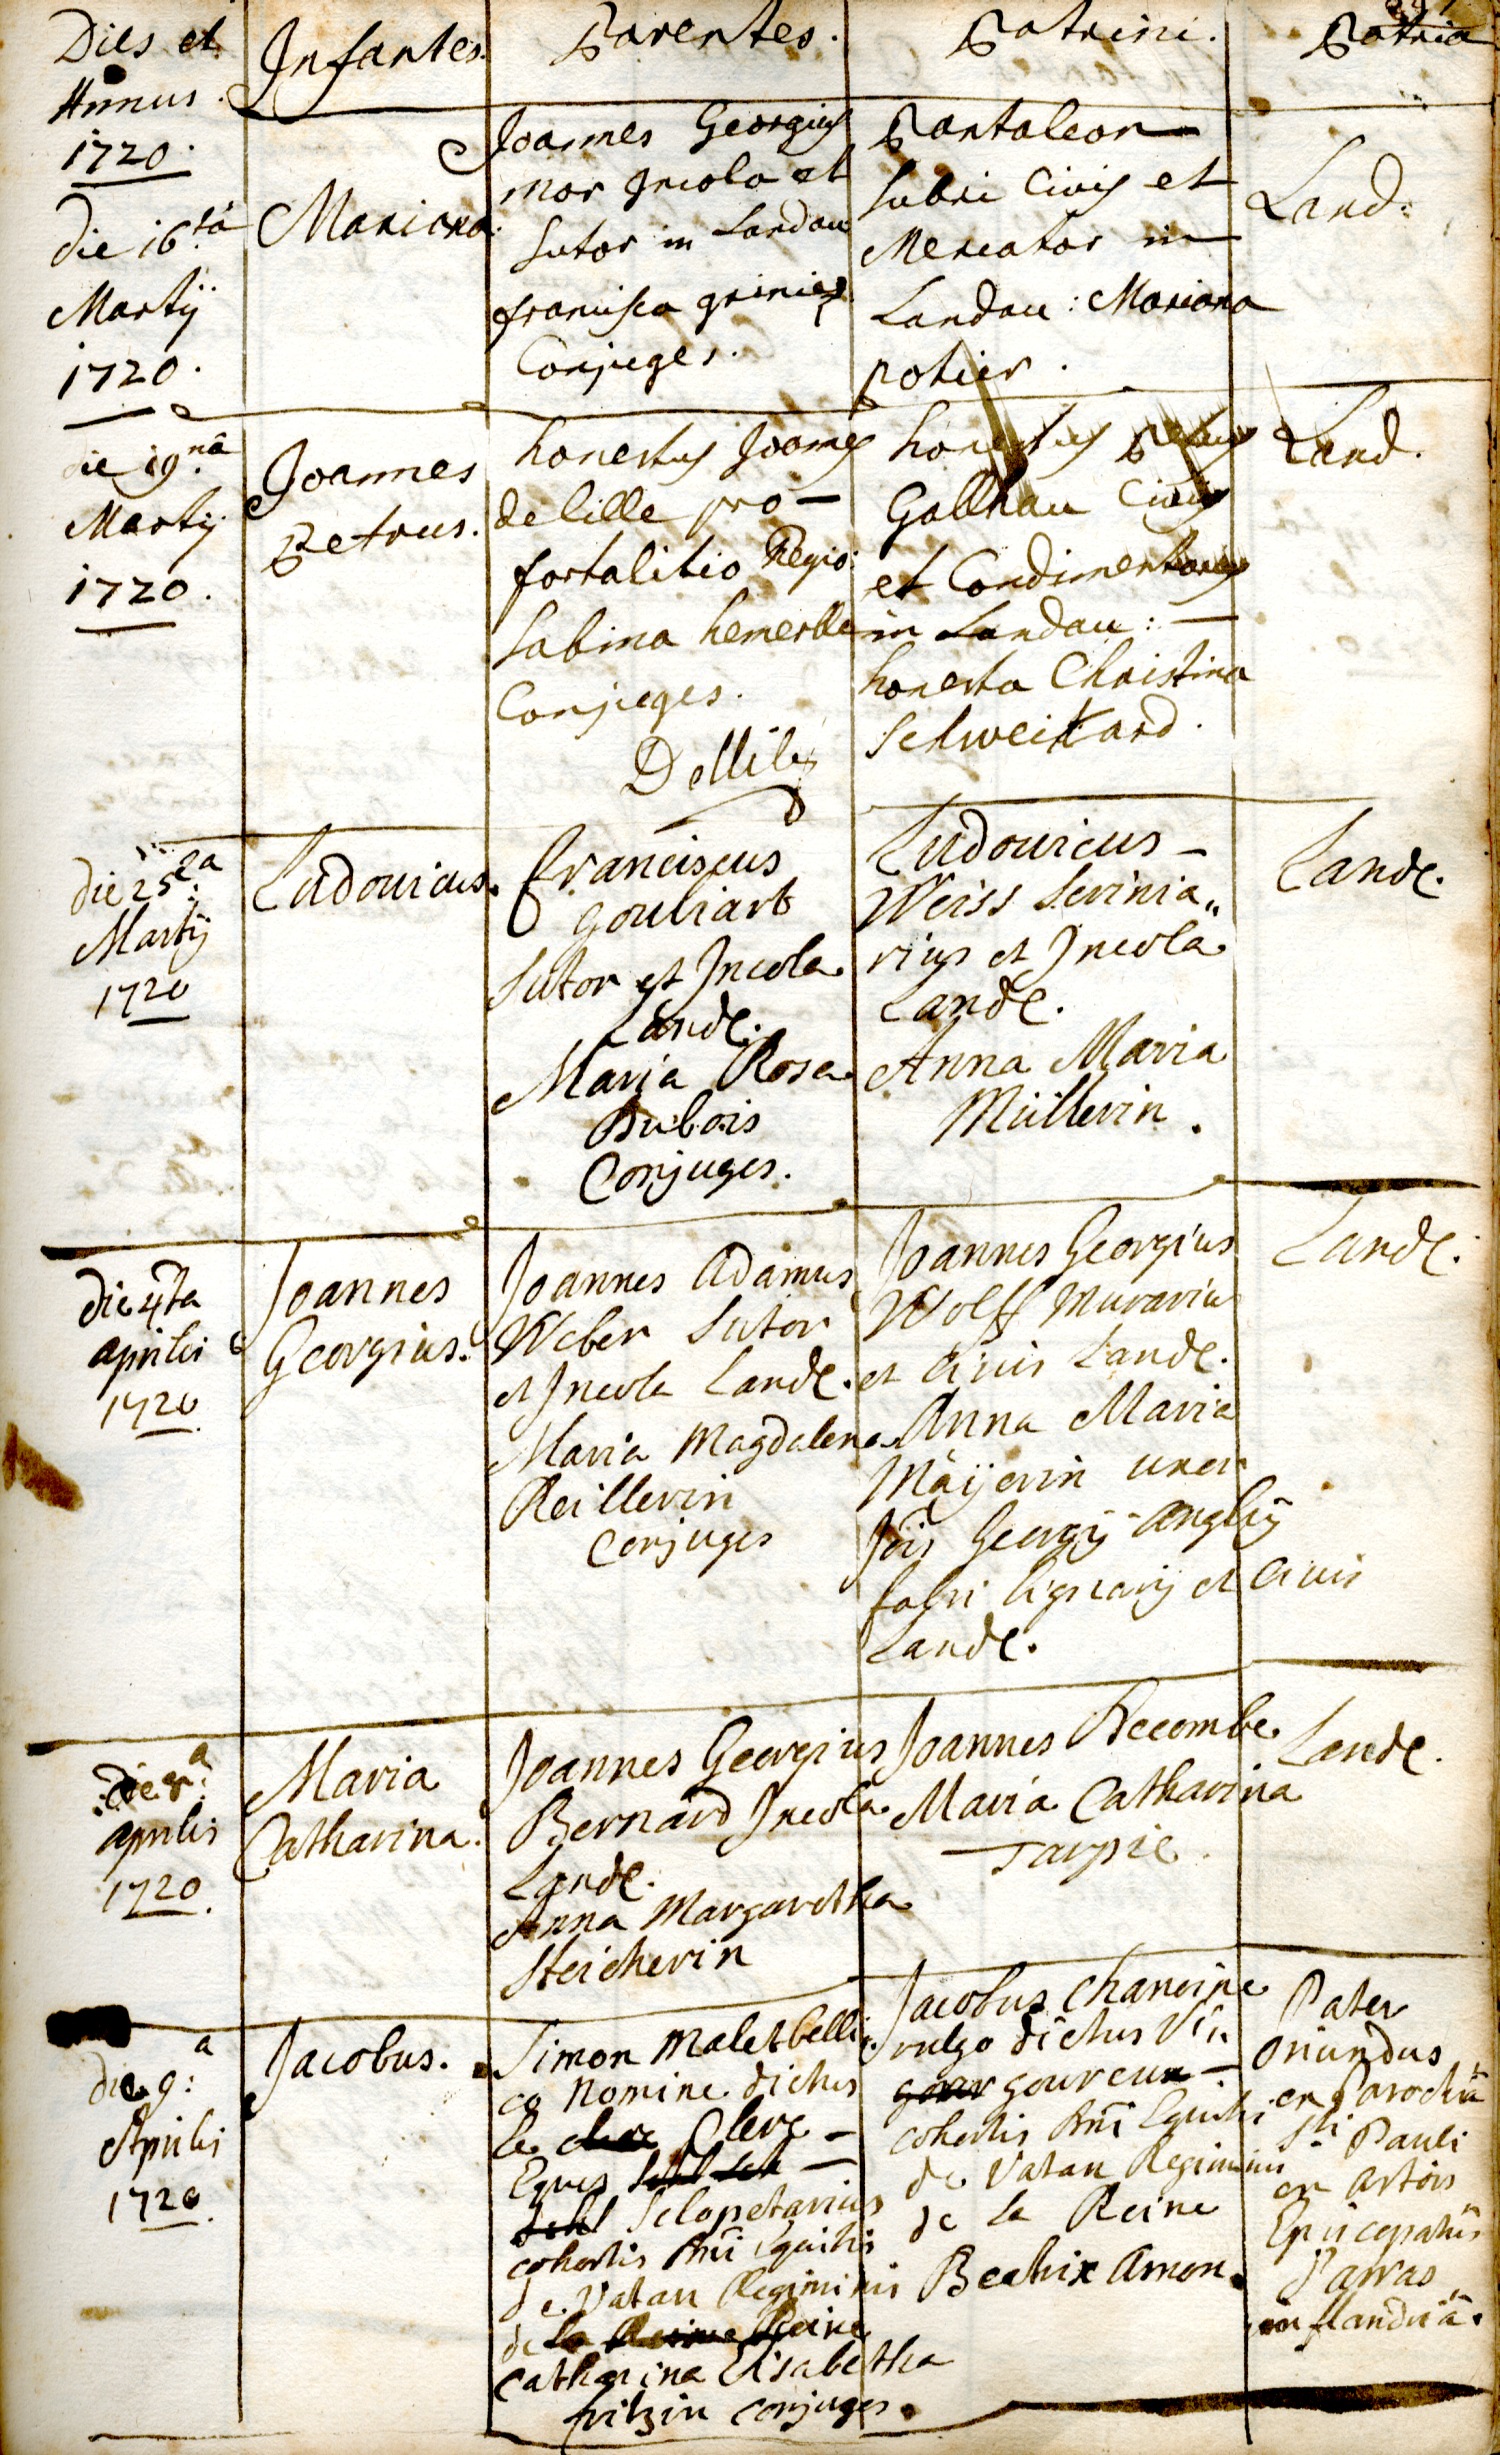 Dies et
Annus.
1720.
Infantes.
Parentes.
Patrini.
Patria
die 16ta
Martij
1720.
Mariana
Joannes Georgius
mor Incola et
Sutor in Landau
francisca
Conjuges.
Pantaleon
Civis et
Mercator in
Landau: Mariana
potier.
Land:
die 19na
Martij
1720.
Joannes
Petrus.
honestus Joannes
de lille pro-
fortalitio Regio
Sabina
Conjuges.
honestus Petrus
Gallhau Civis
et
in Landau:
honesta Christina
Schweikard.
Land.
die 25ta
Martij
1720
Ludovicus.
franciscus
gouliart
Sutor et Incola
Landę.
Maria Rosa
Dubois
Conjuges.
Ludovicus
Weiss Serinia„
rius et Incola
Landę.
Anna Maria
Müllerin.
Landę.
die 4ta
aprilis
1720
Joannes
Georgius.
Joannes Adamus
Weber Sutor
et Incola Landę.
Maria Magdalena
Reillerin
Conjuges
Joannes Georgius
Wolff Murarius
et Civis Landę.
Anna Maria
Mäyerin uxor
Jois Georgij
fabri lignarij et Civis
Landę.
Landę.
die 8a
aprilis
1720
Maria
Catharina.
Joannes Georgius
Bernard Incola
Landę.
Anna Margaretha
Steicherin
Joannes Becombe
Maria Catharina
Tarpie.
Landę.
die 9a:
Aprilis
1720
Jacobus.
Simon
Nomine dictus
le Clerc
Eques
Sclopetarius
cohortis
de Vatan Regiminis
de la Reine
Catharina Elisabetha
conjuges.
Jacobus chanoine
vulgo dictus
cohortis
de Vatan Regiminis
de la Reine
Beatrix Amon.
Pater
oriundus
ex Parochiâ
Sti Pauli
en Artois
Episcopatûs
d'arras
in flandriâ.